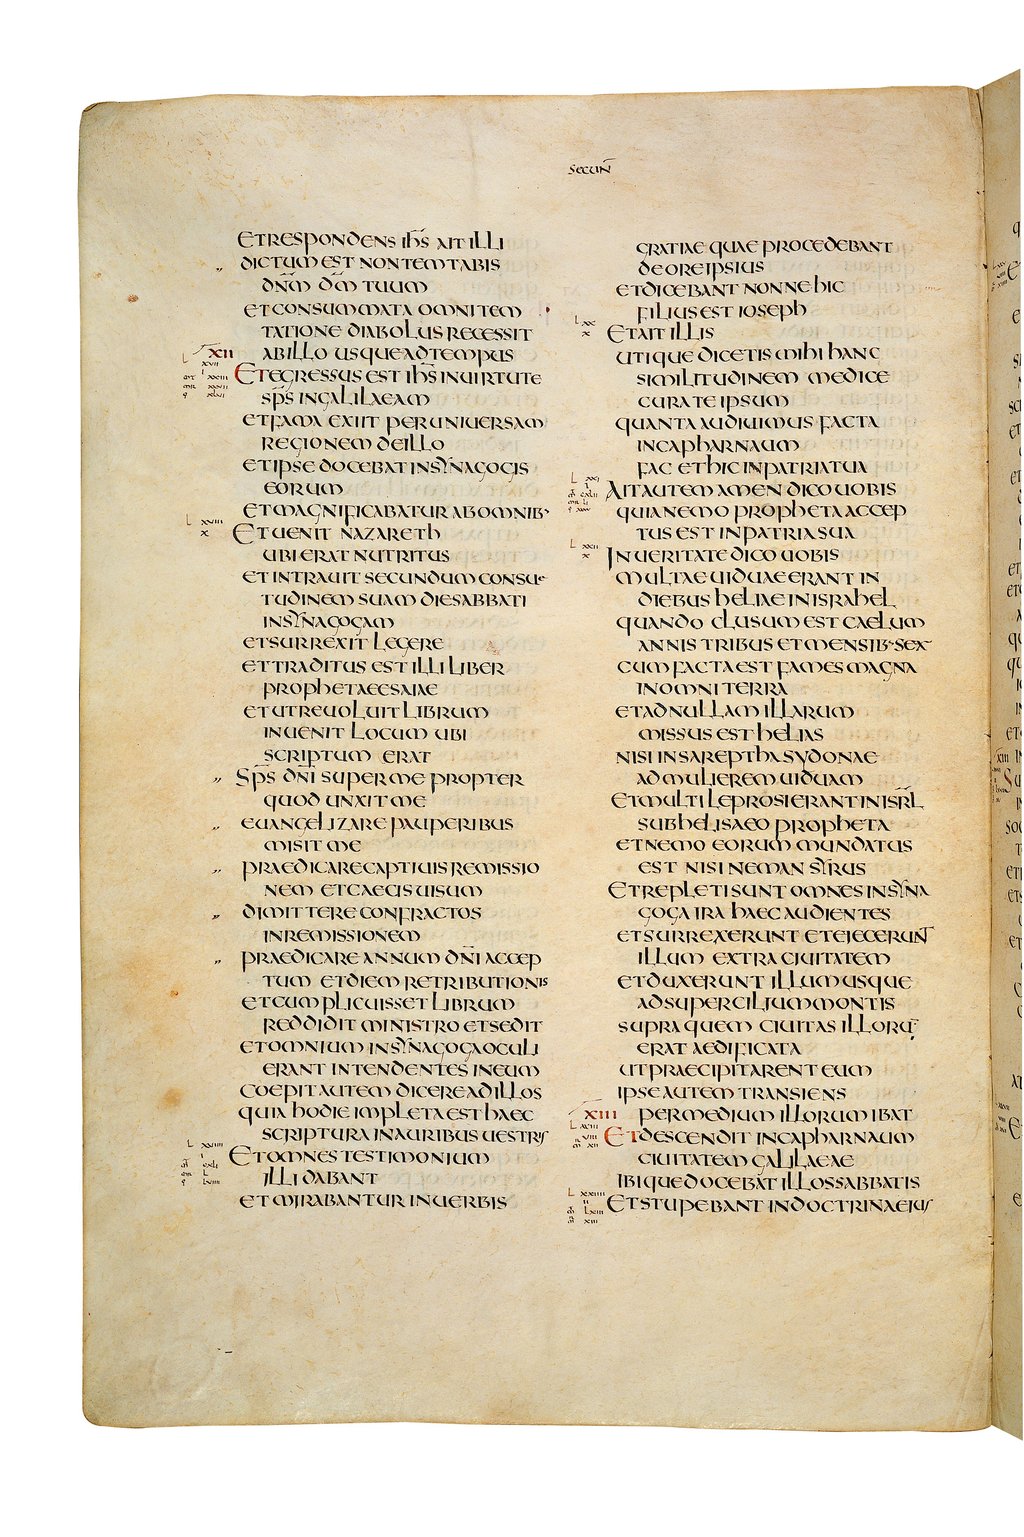 SECUN̄
ET RESPONDENS IH̅S AIT ILLI
DICTUM EST NON TEMTABIS
DN̅M D̅M TUUM
ET CONSUMMATA OMNI TEM
TATIONE DIABOLUS RECESSIT
XII AB ILLO USQUE AD TEMPUS
ET EGRESSUS EST IH̅S IN UIRTUTE
SP̅S IN GALILAEAM
ET FAMA EXIIT PER UNIUERSAM
REGIONEM DE ILLO
ET IPSE DOCEBAT IN SYNAGOGIS
EORUM
ET MAGNIFICABATUR AB OMNIB·
ET UENIT NAZARETH
UBI ERAT NUTRITUS
ET INTRAUIT SECUNDUM CONSUE
TUDINEM SUAM DIE SABBATI
IN SYNAGOGAM
ET SURREXIT LEGERE
ET TRADITUS EST ILLI LIBER
PROPHETAE ESAIAE
ET UT REUOLUIT LIBRUM
INUENIT LOCUM UBI
SCRIPTUM ERAT
SP̅S DN̅I SUPER ME PROPTER
QUOD UNXIT ME
EUANGELIZARE PAUPERIBUS
MISIT ME
PRAEDICARE CAPTIUIS REMISSIO
NEM ET CAECIS UISUM
DIMITTERE CONFRACTOS
IN REMISSIONEM
PRAEDICARE ANNUM DN̅I ACCEP
TUM ET DIEM RETRIBUTIONIS
ET CUM PLICUISSET LIBRUM
REDDIDIT MINISTRO ET SEDIT
ET OMNIUM IN SYNAGOGA OCULI
ERANT INTENDENTES IN EUM
COEPIT AUTEM DICERE AD ILLOS
QUIA HODIE IMPLETA EST HAEC
SCRIPTURA IN AURIBUS UESTRIS
ET OMNES TESTIMONIUM
ILLI DABANT
ET MIRABANTUR IN UERBIS
GRATIAE QUAE PROCEDEBANT
DE ORE IPSIUS
ET DICEBANT NONNE HIC
FILIUS EST IOSEPH
ET AIT ILLIS
UTIQUE DICETIS MIHI HANC
SIMILITUDINEM MEDICE
CURA TE IPSUM
QUANTA AUDIUIMUS FACTA
IN CAPHARNAUM
FAC ET HIC IN PATRIA TUA
AIT AUTEM AMEN DICO UOBIS
QUIA NEMO PROPHETA ACCEP
TUS EST IN PATRIA SUA
IN UERITATE DICO UOBIS
MULTAE UIDUAE ERANT IN
DIEBUS HELIAE IN ISRAHEL
QUANDO CLUSUM EST CAELUM
ANNIS TRIBUS ET MENSIB· SEX
CUM FACTA EST FAMES MAGNA
IN OMNI TERRA
ET AD NULLAM ILLARUM
MISSUS EST HELIAS
NISI IN SAREPTHA SYDONAE
AD MULIEREM UIDUAM
ET MULTI LEPROSI ERANT IN ISR̅L
SUB HELISAEO PROPHETA
ET NEMO EORUM MUNDATUS
EST NISI NEMAN SYRUS
ET REPLETI SUNT OMNES IN SYNA
GOGA IRA HAEC AUDIENTES
ET SURREXERUNT ET EIECERUN̄
ILLUM EXTRA CIUITATEM
ET DUXERUNT ILLUM USQUE
AD SUPERCILIUM MONTIS
SUPRA QUEM CIUITAS ILLORU̅
ERAT AEDIFICATA
UT PRAECIPITARENT EUM
IPSE AUTEM TRANSIENS
XIII PER MEDIUM ILLORUM IBAT
ET DESCENDIT IN CAPHARNAUM
CIUITATEM GALILAEAE
IBIQUE DOCEBAT ILLOS SABBATIS
ET STUPEBANT IN DOCTRINA EIUS